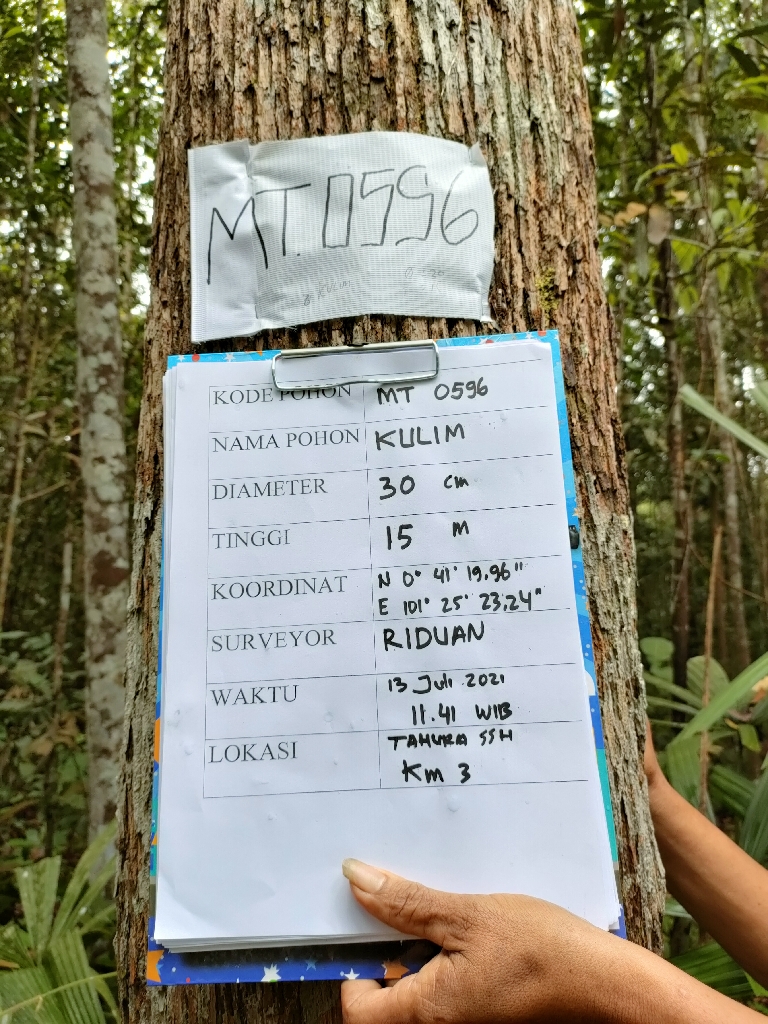 MT.0596
KULIM
KODE POHON MT 0596
NAMA POHON KULIM
DIAMETER 30 cm
TINGGI 15 M
KOORDINAT N 0° 41' 19.96"
E 101° 25' 23.24"
SURVEYOR RIDUAN
WAKTU 13 Juli 2021
11.41 WIB
LOKASI TAHURA SSH
Km 3